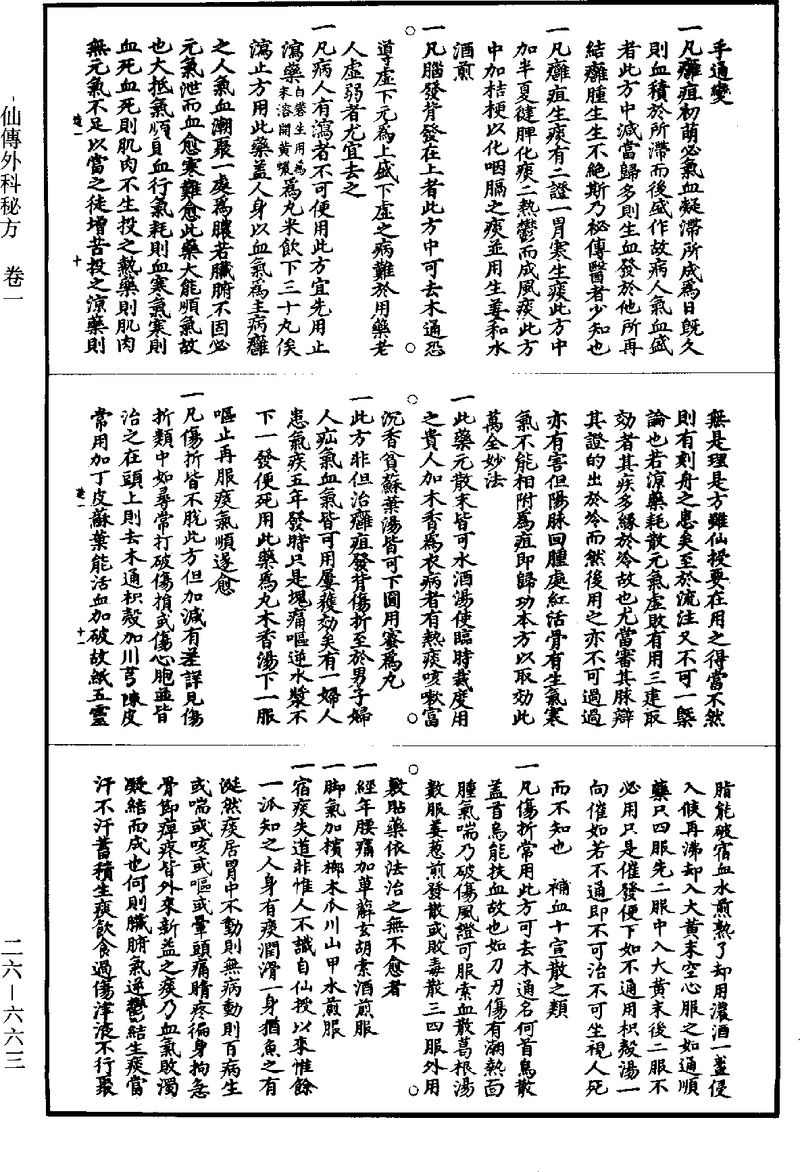 手通變
一凡癰疽初萌必氣血凝滯所成為日既久
則血積於所滯而後盛作故病人氣血盛
者此方中減當歸多則生血發於他所再
結癰腫生生不絕斯乃秘傳醫者少知也
一凡癰疽生痰有二證一胃寒生痰此方中
加半夏健脾化痰二熱鬱而成風痰此方
中加桔梗以化咽膈之痰並用生姜和水
酒煎
一凡腦發背發在上者此方中可去木通恐
導虛下元為上盛下虛之病難於用藥老
人虛弱者尤宜去之
一凡病人有瀉者不可便用此方宜先用止
瀉藥白礬生用為末溶開黃蠟為丸米飲下三十丸俟
瀉止方用此藥蓋人身以血氣為主病癰
之人氣血潮聚一處為膿若臟腑不固必
元氣泄而血愈寒難愈此藥大能順氣故
也大抵氣順則血行氣耗則血寒氣寒則
血死血死則肌肉不生投之熱藥則肌肉
無元氣不足以當之徒增苦投之涼藥則
卷一
十
無是理是方雖仙授要在用之得當不然
則有刻舟之患矣至於流注又不可一槩
論也若涼藥耗散元氣虛敗有用三建取
効者其疾多緣於冷故也尤當審其脉辯
其證的出於冷而然後用之亦不可過過
亦有害但陽脉回腫處紅活骨有生氣寒
氣不能相附為疽即歸功本方以取効此
萬全妙法
一此藥元散末皆可水酒湯使臨時裁度用
之貴人加木香為衣病者有熱痰咳嗽富
沉香貧蘇葉湯皆可下圓用蜜為丸
一此方非但治癰疽發背傷折至於男子婦
人疝氣血氣皆可用屢獲効矣有一婦人
患氣疾五年發時只是塊痛嘔逆水漿不
下一發便死用此藥為丸木香湯下一服
嘔止再服痰氣順遂愈
一凡傷折皆不脫此方但加減有差詳見傷
折類中如尋常打破傷損或傷心胞並皆
治之在頭上則去木通枳殼加川芎陳皮
常用加丁皮蘇葉能活血加破故紙五靈
卷一
十一
脂能破宿血水煎熟了却用濃酒一盞侵
入候再沸却入大黃末空心服之如通順
藥只四服先二服中入大黃末後二服不
必用只是催發便下如不通用枳殼湯一
向催如若不通即不可治不可坐視人死
而不知也　補血十宣散之類
一凡傷折常用此方可去木通名何首烏散
蓋首烏能扶血故也如刀刃傷有潮熱面
腫氣喘乃破傷風證可服索血散葛根湯
數服姜葱煎發散或敗毒散三四服外用
敷貼藥依法治之無不愈者
一經年腰痛加萆薢玄胡索酒煎服
一脚氣加檳榔木瓜川山甲水煎服
一宿痰失道非惟人不識自仙授以來惟餘
一派知之人身有痰潤滑一身猶魚之有
涎然痰居胃中不動則無病動則百病生
或喘或咳或嘔或暈頭痛睛疼徧身拘急
骨節痺疼皆外來新益之痰乃血氣敗濁
凝結而成也何則臟腑氣逆鬱結生痰當
汗不汗蓄積生痰飲食過傷津液不行聚
仙傳外科秘方　卷一
二六—六六三